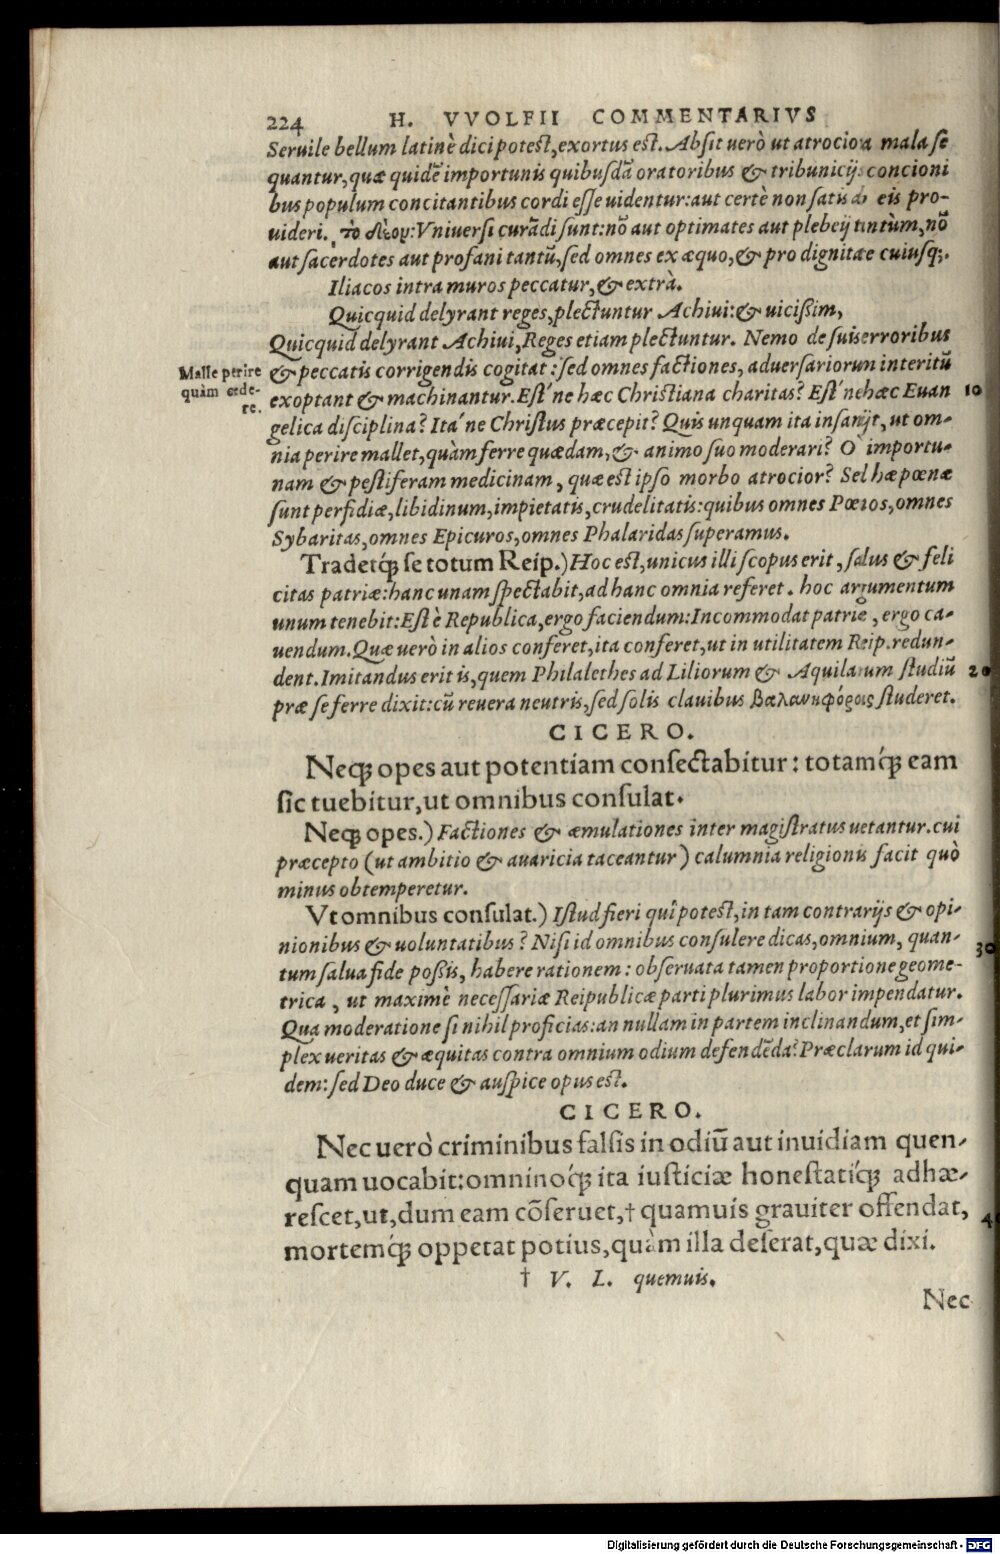 224 H. VVOLFII COMMENTARIVS
Seruile bellum latinè dici potest, exortus est. Absit uerò ut atrociora mala se
quantur, quæ quidẽ importunis quibusdã oratoribus & tribunicijs concioni
bus populum concitantibus cordi esse uidentur: aut certè non satis ab eis pro-
uideri. τὸ ὅλον: Vniuersi curãdi sunt: nõ aut optimates aut plebeij tantùm, nõ
aut sacerdotes aut profani tantũ, sed omnes ex æquo, & pro dignitate cuiusq;.
Iliacos intra muros peccatur, & extrà.
Quicquid delyrant reges, plectuntur Achiui: & uicißim,
Quicquid delyrant Achiui, Reges etiam plectuntur. Nemo de suis erroribus
Malle perire & peccatis corrigendis cogitat: sed omnes factiones, aduersariorum interitũ
quàm cede- exoptant & machinantur. Est´ne hæc Christiana charitas? Est´ne hæc Euan 10
re. gelica disciplina? Ita´ne Christus præcepit? Quis unquam ita insanijt, ut om-
nia perire mallet, quàm ferre quædam, & animo suo moderari? O importu-
nam & pestiferam medicinam, quæ est ipso morbo atrocior? Sed hæ pœnæ
sunt perfidiæ, libidinum, impietatis, crudelitatis: quibus omnes Pœnos, omnes
Sybaritas, omnes Epicuros, omnes Phalaridas superamus.
Tradetq́; se totum Reip.) Hoc est, unicus illi scopus erit, salus & feli
citas patriæ: hanc unam spectabit, ad hanc omnia referet. hoc argumentum
unum tenebit: Est è Republica, ergo faciendum: Incommodat patriæ, ergo ca-
uendum. Quæ uerò in alios conferet, ita conferet, ut in utilitatem Reip. redun-
dent. Imitandus erit is, quem Philalethes ad Liliorum & Aquilarum studiũ 20
præ se ferre dixit: cũ reuera neutris, sed solis clauibus βαλανηφόροις studeret.
CICERO.
Neq; opes aut potentiam consectabitur: totamq́; eam
sic tuebitur, ut omnibus consulat.
Neq; opes.) Factiones & æmulationes inter magistratus uetantur. cui
præcepto (ut ambitio & auaricia taceantur) calumnia religionis facit quò
minus obtemperetur.
Vt omnibus consulat.) Istud fieri quî potest, in tam contrarijs & opi-
nionibus & uoluntatibus? Nisi id omnibus consulere dicas, omnium, quan- 30
tum salua fide poßis, habere rationem: obseruata tamen proportione geome-
trica, ut maximè necessariæ Reipublicæ parti plurimus labor impendatur.
Qua moderatione si nihil proficias: an nullam in partem inclinandum, et sim-
plex ueritas & æquitas contra omnium odium defendẽda? Præclarum id qui-
dem: sed Deo duce & auspice opus est.
CICERO.
Nec uerò criminibus falsis in odiũ aut inuidiam quen-
quam uocabit: omninoq́; ita iusticiæ honestatiq́; adhæ-
rescet, ut, dum eam cõseruet, † quamuis grauiter offendat, 40
mortemq́; oppetat potius, quàm illa deserat, quæ dixi.
† V. L. quemuis.
Nec
Digitalisierung gefördert durch die Deutsche Forschungsgemeinschaft - DFG